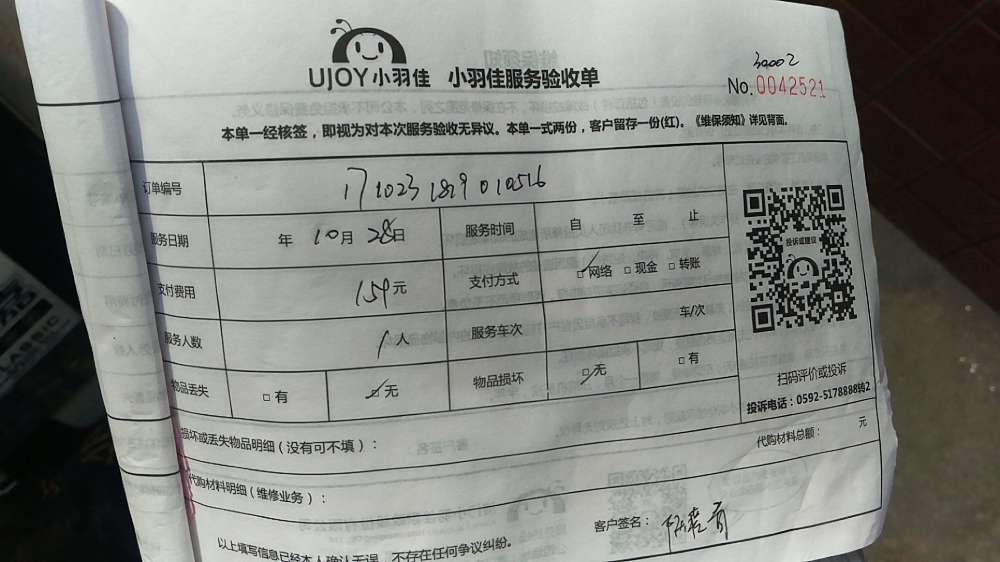 UJOY小羽佳 小羽佳服务验收单
30002
No.0042521
本单一经核签，即视为对本次服务验收无异议。本单一式两份，客户留存一份(红)。《维保须知》详见背面。
订单编号 1710231819010516
服务日期 年 10月 28日 服务时间 自 至 止
支付费用 159元 支付方式 □网络 □现金 □转账
服务人数 1人 服务车次 车/次
物品丢失 □有 □无 物品损坏 □无 □有
投诉或建议
扫码评价或投诉
投诉电话：0592-5178888转2
损坏或丢失物品明细（没有可不填）：
代购材料明细（维修业务）： 代购材料总额： 元
以上填写信息已经本人确认无误，不存在任何争议纠纷。 客户签名：